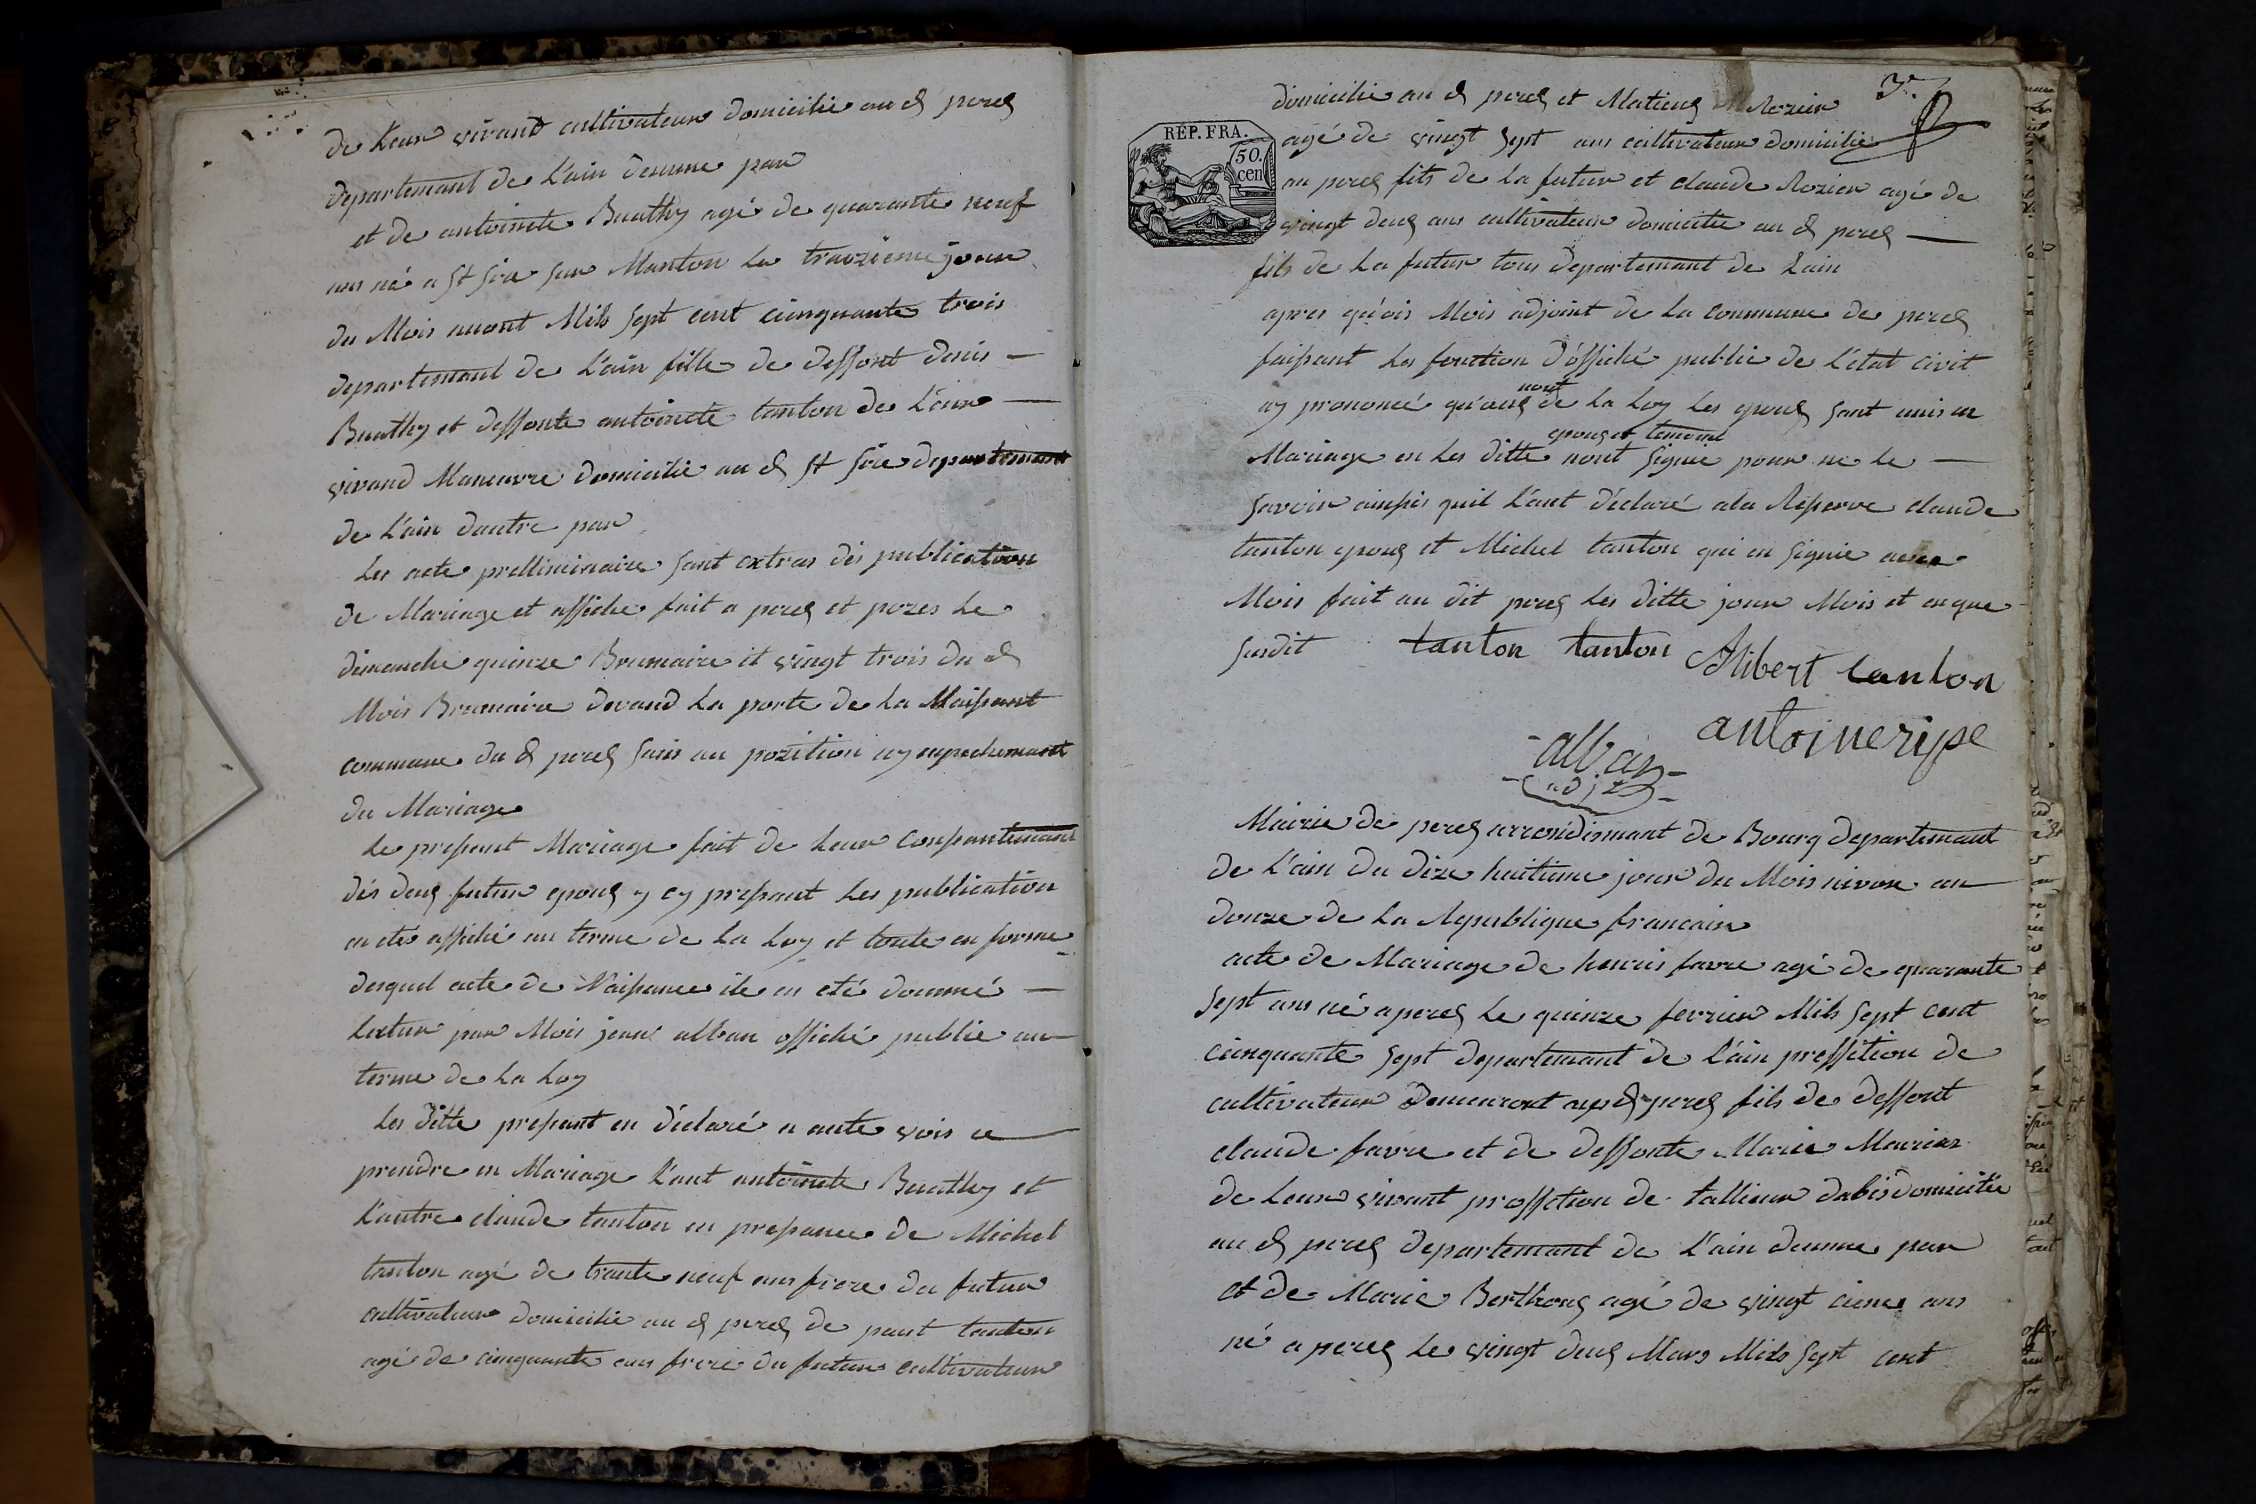 de leur vivant cultivateur domicilie au d perex
departemant de l'ain deunne par
et de antoinete Buathy agé de quarante neuf
ans né a St sire sur Manton le trauzieme jour
du Mois auout Mils sept cent cainquante trois
departemant de l'ain fille de deffont denis
Buathy et deffonte antoinete tanton de l'eur
vivand Maneuvre domicilie au d St sire departemant
de l'ain dautre par
les acte prelliminaire sont extras dés publication
de Mariage et affiche fait a perex et pozes le
dimanche quinze Brumaire et vingt trois du d
Mois Brumaire devand la porte de la Maisont
commune du d perex sans au pozition ny enpechemant
du Mariage
le presant Mariage fait de leur consantemant
dés deux futur epoux y cy presant les publication
on etés affiché au terme de la loy et toute en forme
desquel acte de Naisance ile en eté donné
lextur par Mois jean alban offiché public au
terme de la loy
les ditte presant en déclaré a aute vois ce
prendre en Mariage l'ant antoinete Buathy et
l'autre claude tanton en presance de Michel
tanton agé de trante neuf ans frere du futur
cultivateur domicilie au d perex de pant tanton
agé de cinquante ans frere du futur cultivateur
3e
domicilie au d perex et Matieux Rozier
REP. FRA.
50.
cen
agé de vingt sept ans cultivateur domicilie
au perex fits de la futur et claude Rozier agé de
vingt deux ans cultivateur domicilie au d perex
fils de la futur tous departemant de lain
apres qu'ois Mois adjoint de la commune de perex
faisant les fonction d'offiché public de l'état civit
nont
ay prononcé qu'aux de la loy les epoux sont unis en
epoux et temoins
Mariage en les ditte nont signie pour ne le
savoir ainsis quil l'ant déclaré a la Réserve claude
tanton epoux et Michel tanton qui en signie avec
Mois fait au dit perex les ditte jour Mois et an que
susdit tanton tanton Alibert tanton
antoineripe
alban
adjt
Mairie de perex arrondismant de Bourg departemant
de l'ain du dize huitieme jour du Mois nivose an
douze de la Republique francaise
acte de Mariage de henris favre agé de quarante
sept ans né a perex le quinze fevrier Mils sept cent
cainquante sept departemant de l'ain proffition de
cultivateur demeurant au d perex fils de deffont
claude favre et de deffonte Marie Maurier
de leur vivant proffetion de tallieur dabis domicilie
au d perex departemant de l'ain deunne par
et de Marie Berthoux agé de vingt cienc ans
né a perex le vingt deux Mars Mils sept cent